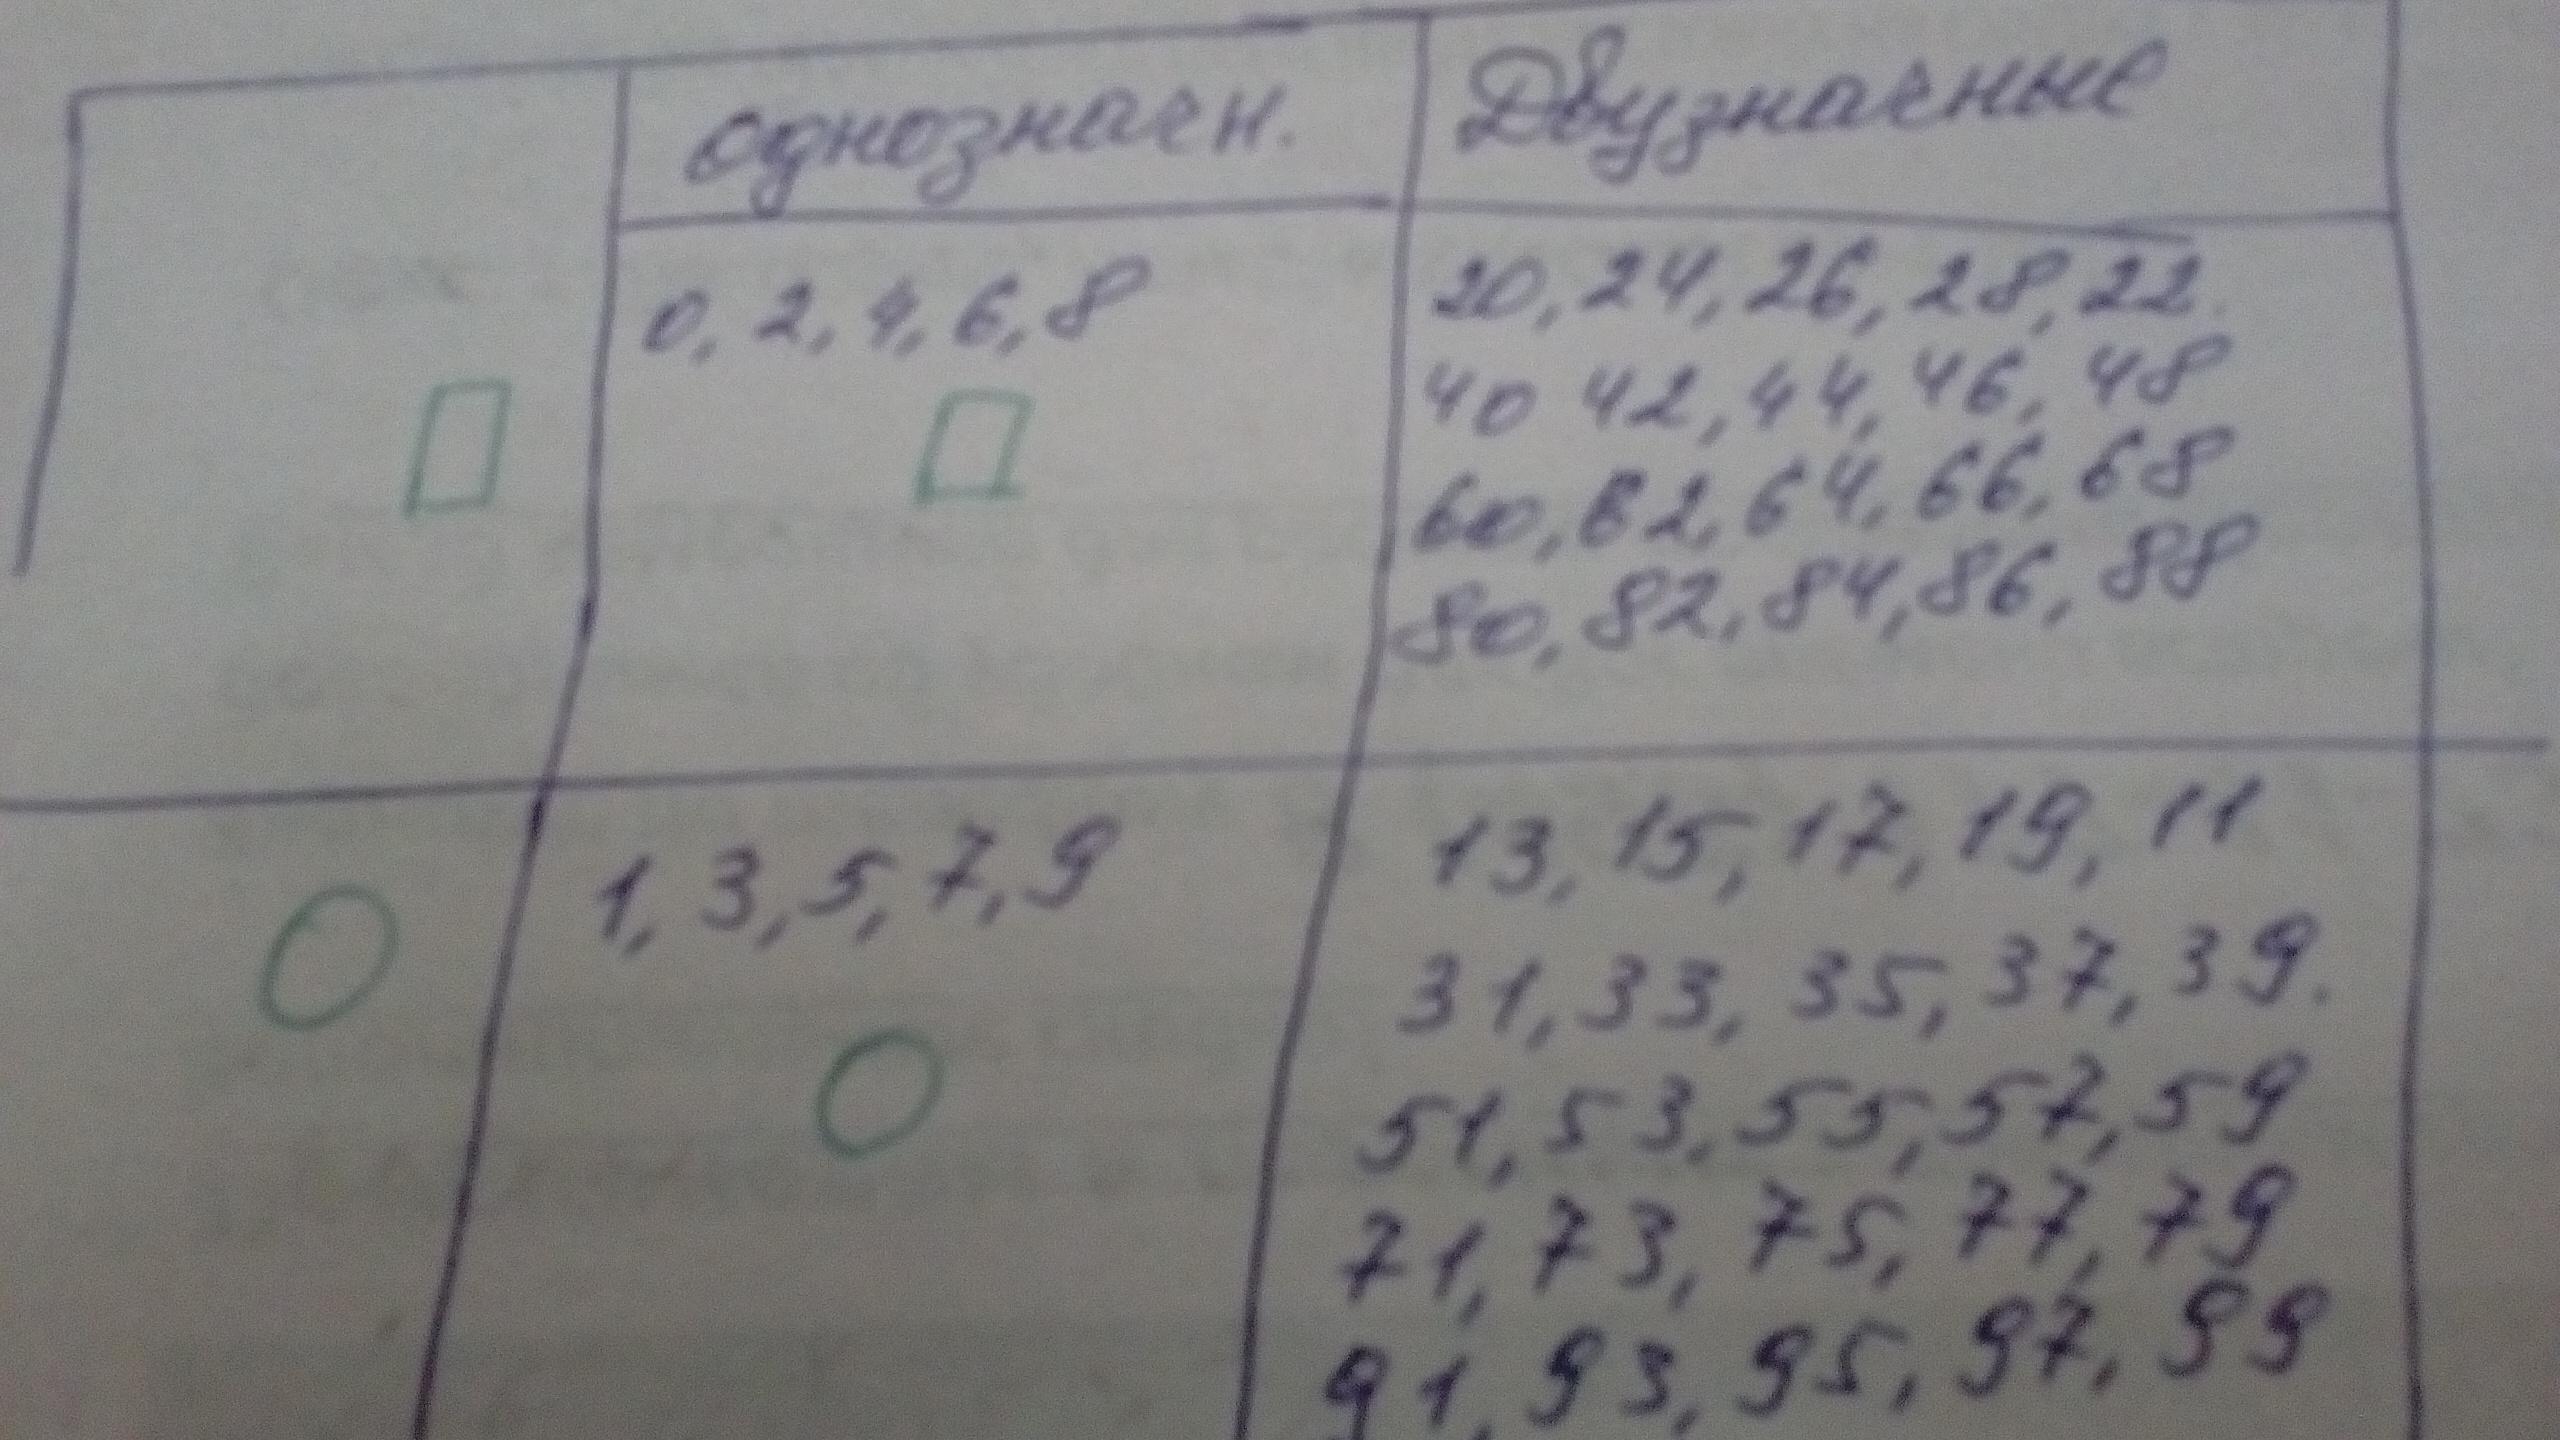 однозначн.
Двузначные
0, 2, 4, 6, 8
20, 24, 26, 28, 22.
40 42, 44, 46, 48
60, 62, 64, 66, 68
80, 82, 84, 86, 88
1, 3, 5, 7, 9
13, 15, 17, 19, 11
31, 33, 35, 37, 39.
51, 53, 55, 57, 59
71, 73, 75, 77, 79
91, 93, 95, 97, 99